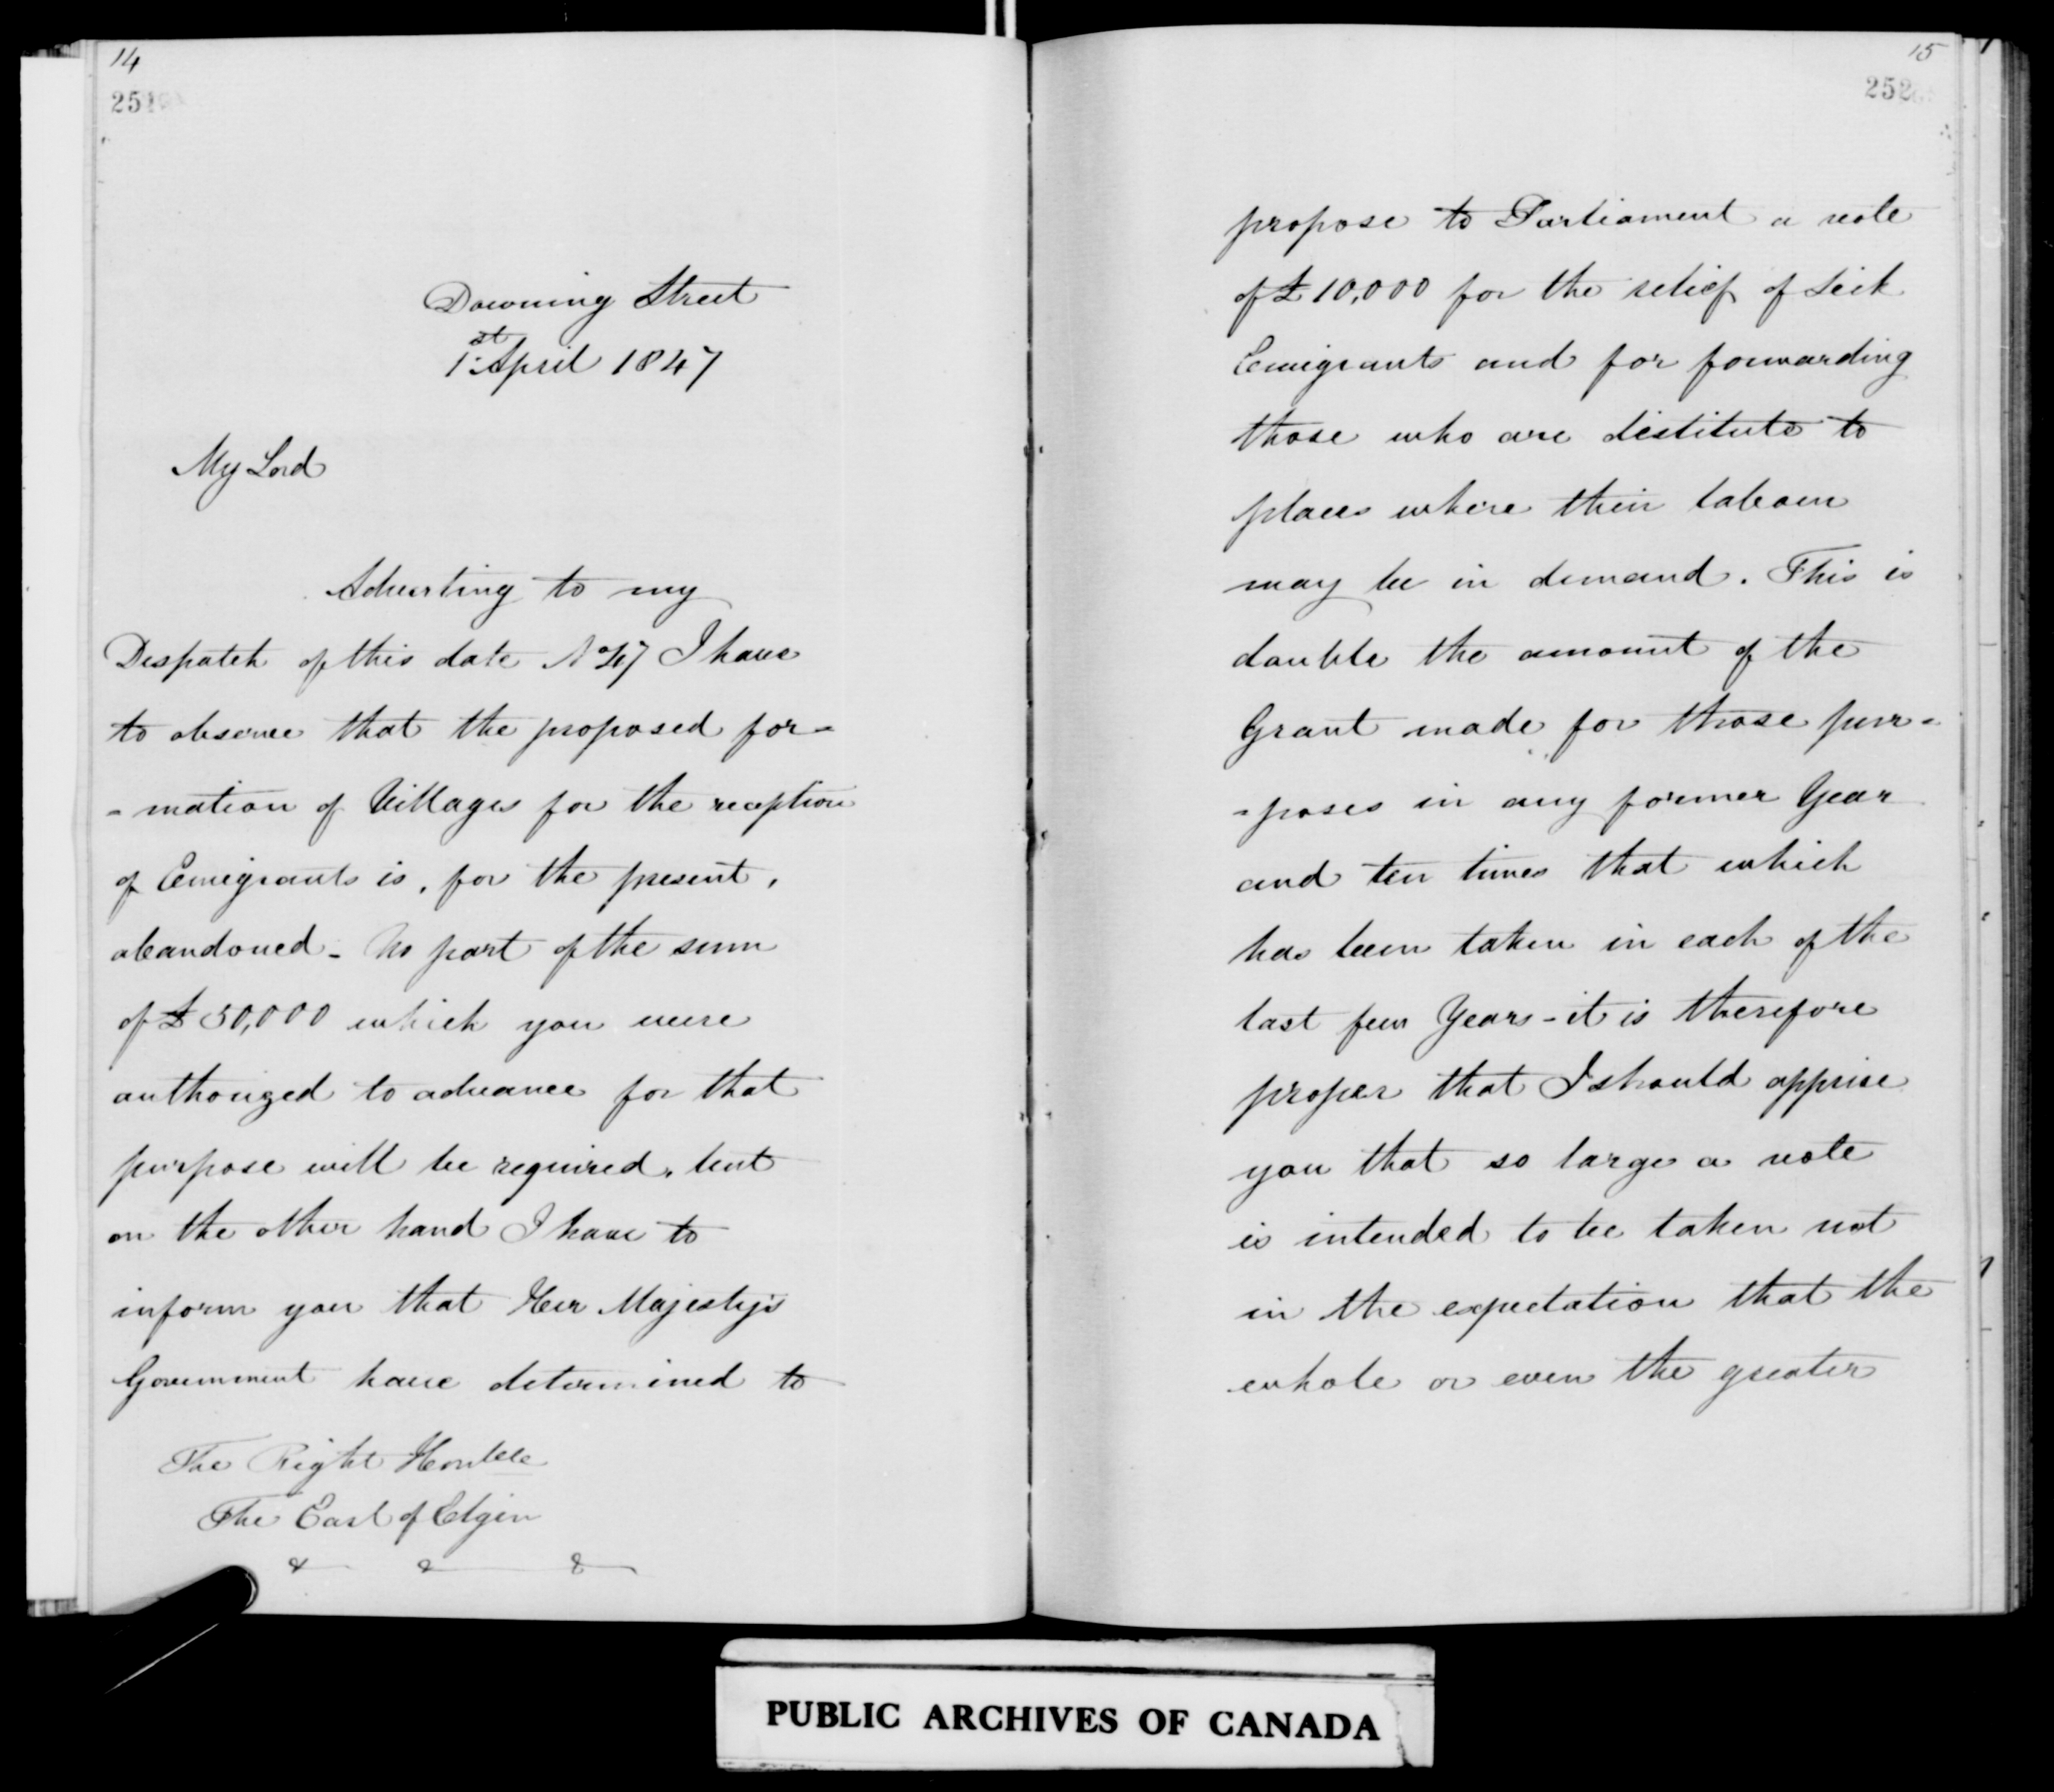 14
251
Downing Street
1st April 1847
My Lord
Adverting to my
Despatch of this date No 47 I have
to observe that the proposed for=
=mation of Villages for the reception
of Emigrants is, for the present,
abandoned - No part of the sum
of £50,000 which you were
authorized to advance for that
purpose will be required, but
on the other hand I have to
inform you that Her Majesty's
Government have determined to
The Right Honble
The Earl of Elgin
& & &
15
252
propose to Parliament a vote
of £10,000 for the relief of Sick
Emigrants and for forwarding
those who are destitute to
places where their labour
may be in demand. This is
double the amount of the
Grant made for those pur=
=poses in any former Year
and ten times that which
has been taken in each of the
last few Years - it is therefore
proper that I should apprise
you that so large a vote
is intended to be taken not
in the expectation that the
whole or even the greater
PUBLIC ARCHIVES OF CANADA